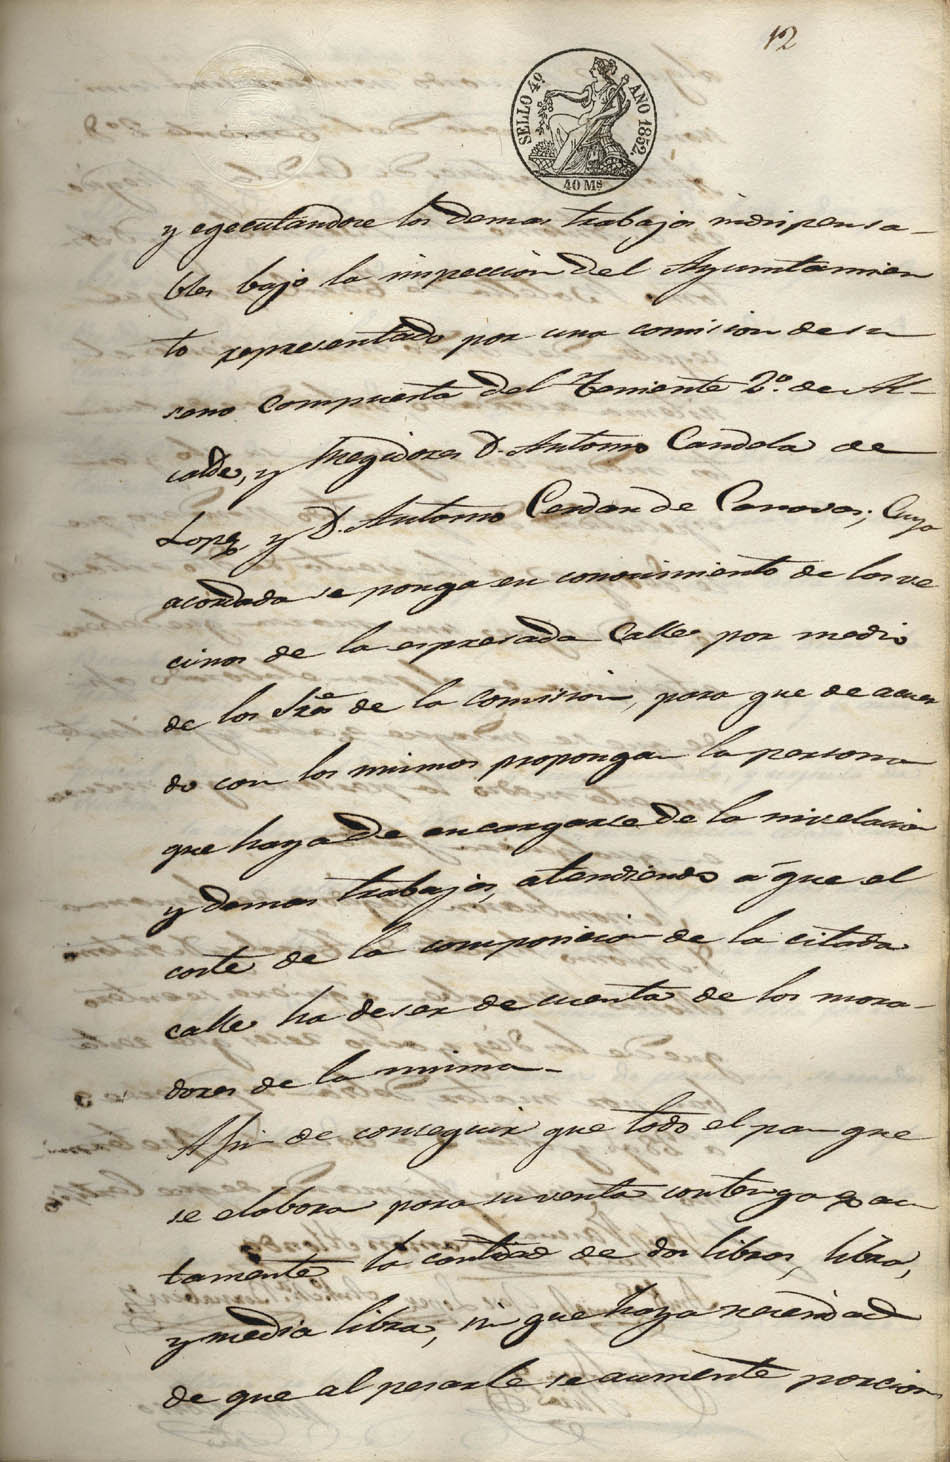 12
SELLO 4º AÑO 1852.
40 Ms
y egecutandose los demas trabajos indispensa-
bles bajo la inspeccion del Ayuntamien
to representado por una comision de su
seno compuesta del Teniente 2º. de Al-
calde, y Regidores D. Antonio Candela de
Lopez, y D. Antonio Cerdan de Canovas; Cuyo
acordada se ponga en conocimiento de los ve
cinos de la espresada Calle por medio
de los Sres de la comision, para que de acuer
do con los mismos propongan la persona
que haya de encargarse de la nivelacion
y demas trabajos, atendiendo á que el
coste de la composicion de la citada
calle ha de ser de cuenta de los mora-
dores de la misma-
A fin de conseguir que todo el pan que
se elabora para su venta contenga exac
tamente la cantidad de dos libras, libra,
y media libra, sin que haya necesidad
de que al pesarle se aumente porcion